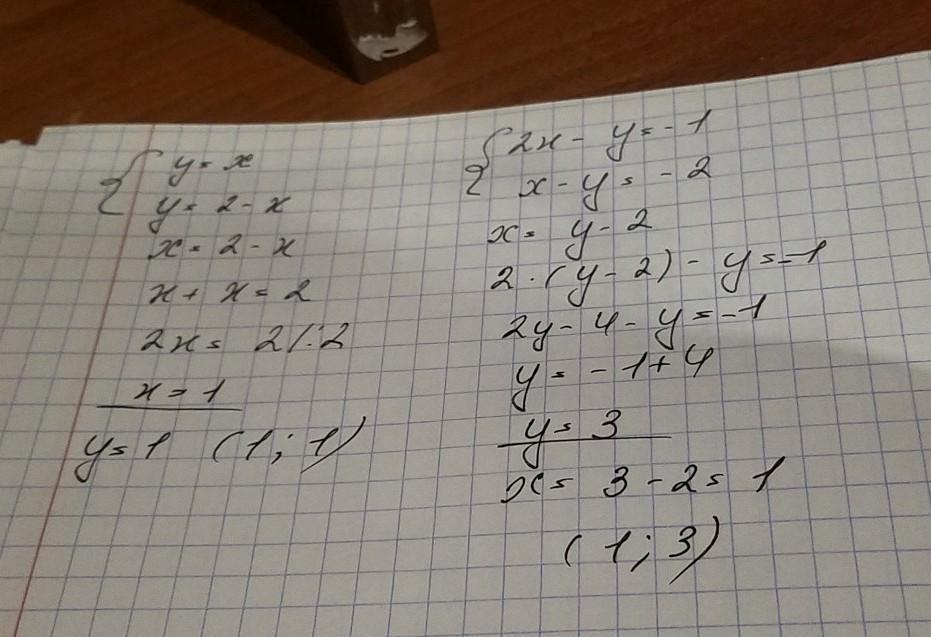 y = x
y = 2 - x
x = 2 - x
x + x = 2
2x = 2 /: 2
x = 1
y = 1 (1; 1)
2x - y = - 1
x - y = - 2
x = y - 2
2 · (y - 2) - y = -1
2y - 4 - y = -1
y = - 1 + 4
y = 3
x = 3 - 2 = 1
(1; 3)